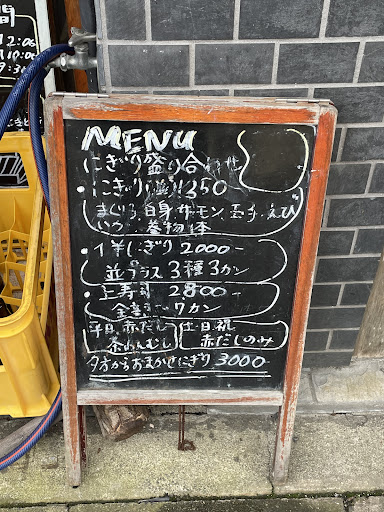 間
12:0
10:0
9:3
MENU
にぎり盛り合わせ
・にぎり 1350
まぐろ 白身 サーモン 玉子 えび
いか 巻物1本
・1.5半にぎり 2000-
並プラス 3種3カン
・上寿司 2800-
全部で7カン
平日 赤だし
茶わんむし
土日祝
赤だしのみ
夕方からおまかせにぎり 3000